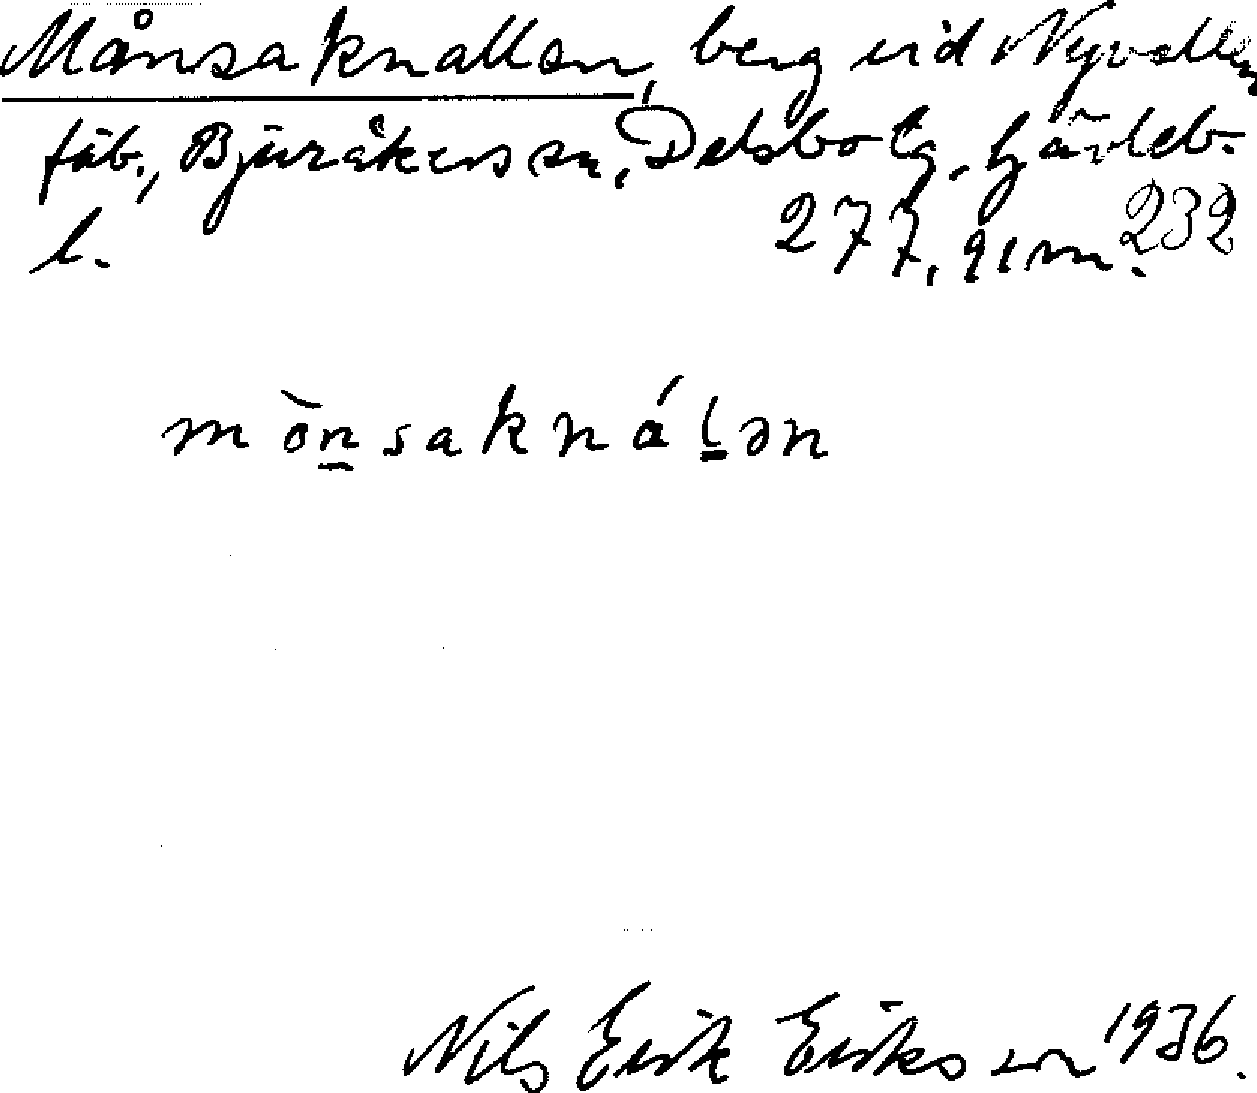 Månsaknallen, berg vid Nyvallens
fäb., Bjuråkers sn, Delsbo tg, Gävleb.
l. 277, 91 m. 232
mò̱nsaknáḻən
Nils Erik Eriksson 1936.